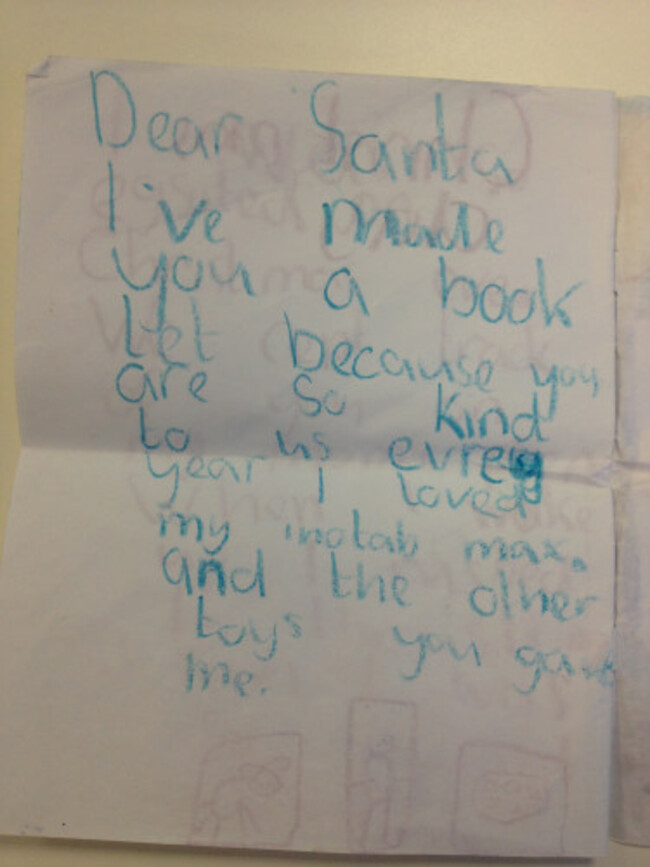 Dear Santa
I've made
you a book
let because you
are so kind
to us evrey
year I loved
my inotab max.
and the other
toys you gave
me.